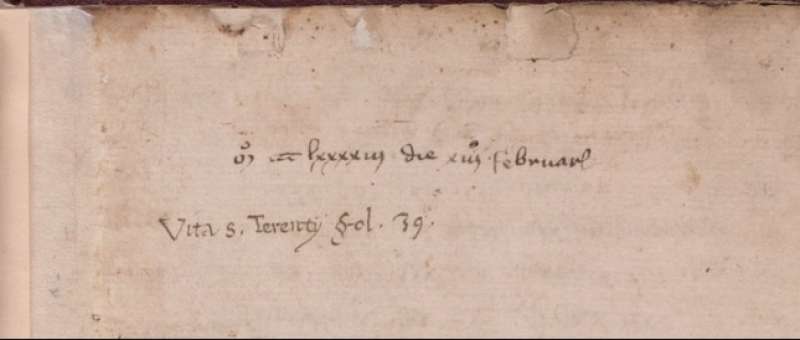 lxxxxiij die xiiij februarij
Vita s. Terentij fol. 39.